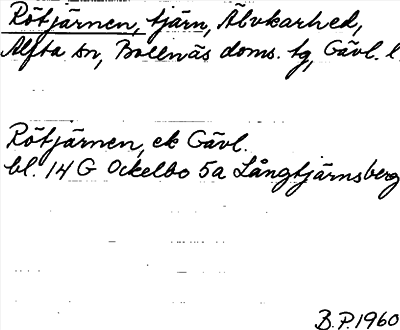 Rötjärnen, tjärn, Älvkarhed,
Alfta sn, Bollnäs doms. tg, Gävl. l.
Rötjärnen, ek Gävl.
bl. 14 G Ockelbo 5a Långtjärnsberg
B.P. 1960